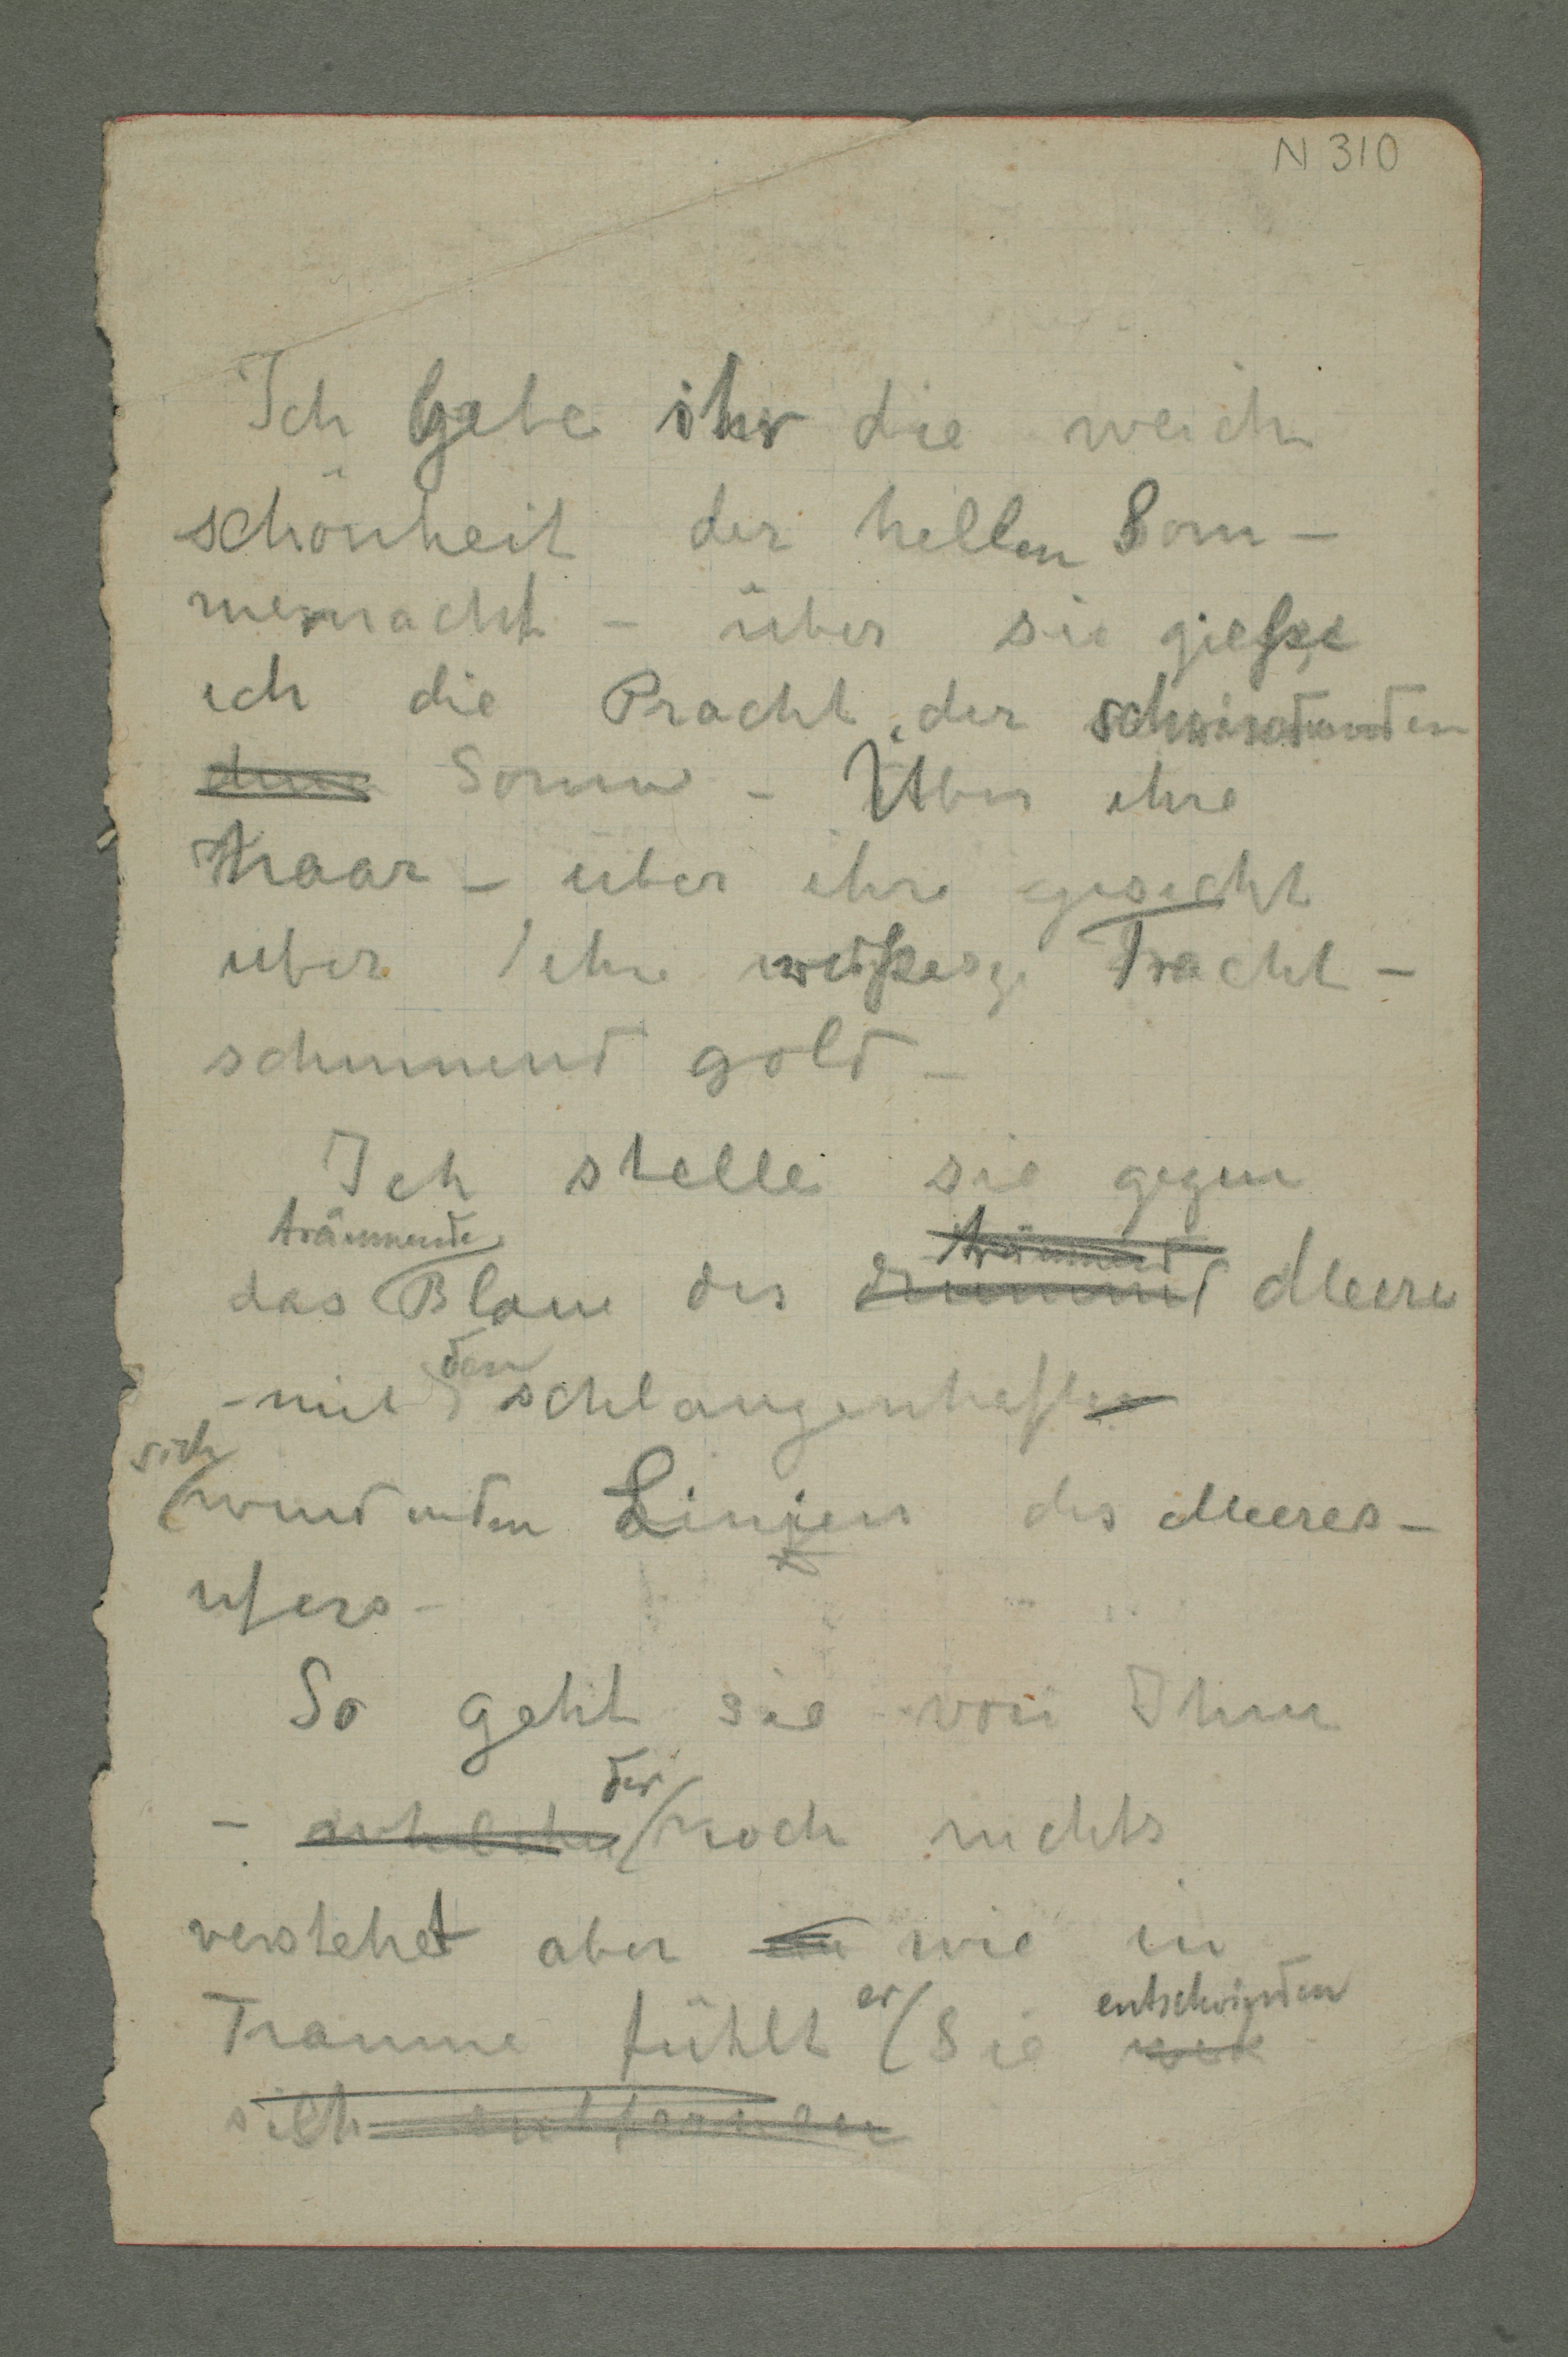 N 310
Ich Gebe ihr die weich
schönheit der hellen Som-
mernacht - über sie gieße
ich die Pracht der schwindenden
Sonne - Über ihre
Haar - über ihre gesicht
über ihre weiße Tracht -
schimmend gold -
Ich stelle sie gegen
träumende träumend
das Blaue des Meere
den
- mit schlangenhaften
sich
windenden Linien des Meeres-
ufers -
So geht sie von Ihm
der
- noch nichts
verstehet aber wie in
er entschwinden
Traume fühlt Sie
sich entfernen